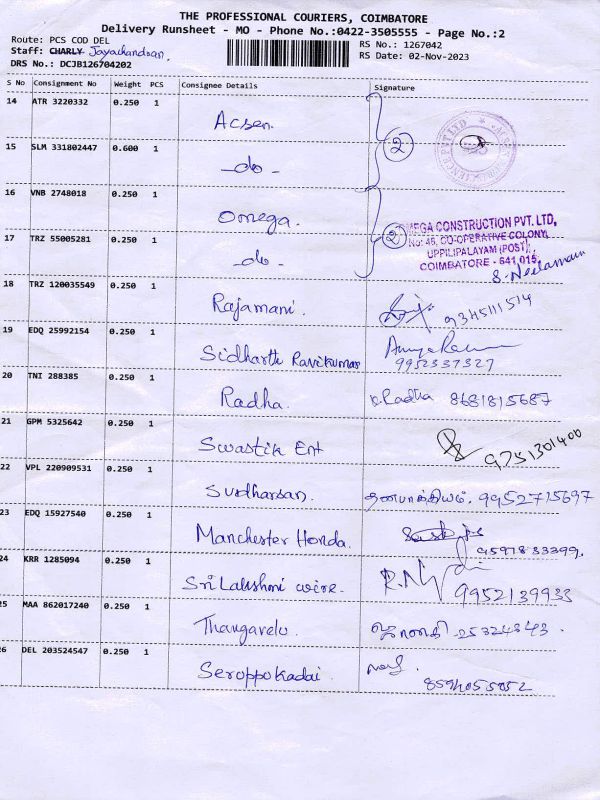 THE PROFESSIONAL COURIERS, COIMBATORE
Delivery Runsheet - MO - Phone No.:0422-3505555 - Page No.:2
Route: PCS COD DEL
Staff: CHARLY Jayachandran.
DRS No.: DCJB126704202
RS No.: 1267042
RS Date: 02-Nov-2023
S No Consignment No Weight PCS Consignee Details Signature
14 ATR 3220332 0.250 1 Acsen. 2
15 SLM 331802447 0.600 1 -do-
16 VNB 2748018 0.250 1 Omega. 2
MEGA CONSTRUCTION PVT. LTD,
No: 45, CO-OPERATIVE COLONY,
UPPILIPALAYAM (POST),
COIMBATORE - 641 015.
S. Neelamani
17 TRZ 55005281 0.250 1 -do-
18 TRZ 120035549 0.250 1 Rajamani. 9345111514
19 EDQ 25992154 0.250 1 Sidharth Ravikumar
9952337327
20 TNI 288385 0.250 1 Radha. K. Radha 8681815687
21 GPM 5325642 0.250 1 Swastik Ent 9751301400
22 VPL 220909531 0.250 1 Sudharsan. 9952715697
23 EDQ 15927540 0.250 1 Manchester Honda.
9597833399.
24 KRR 1285094 0.250 1 Sri Lakshmi wire.
9952139933
25 MAA 862017240 0.250 1 Thangavelu. ஜானகி 25324343.
26 DEL 203524547 0.250 1 Seroppokadai.